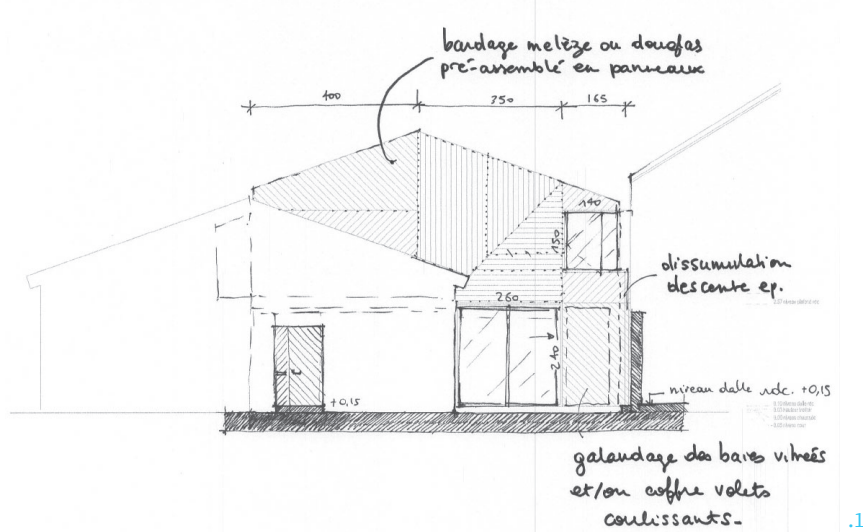 bardage melèze ou douglas
pré-assemblé en panneaux
400
350
165
140
150
dissimulation
descente ep.
260
240
niveau dalle rdc. +0,15
+0,15
galandage des baies vitrées
et/ou coffre volets
coulissants.
.1